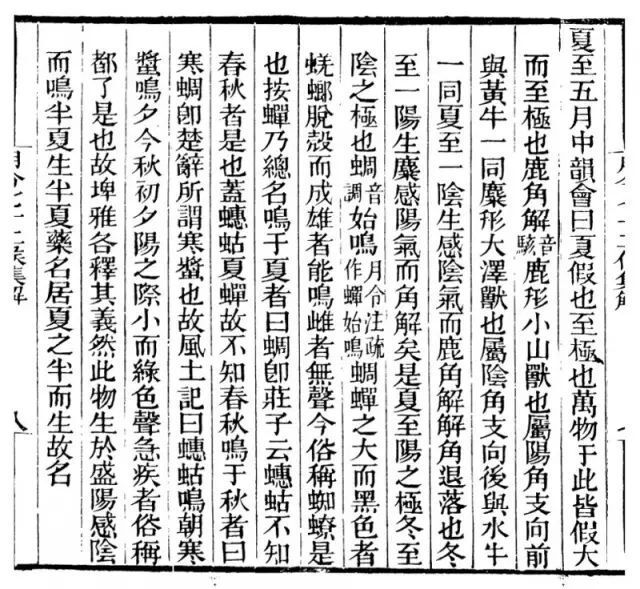 夏至五月中韻會曰夏假也至極也萬物于此皆假大
而至極也鹿角解音駭鹿形小山獸也屬陽角支向前
與黃牛一同麋形大澤獸也屬陰角支向後與水牛
一同夏至一陰生感陰氣而鹿角解解角退落也冬
至一陽生麋感陽氣而角解矣是夏至陽之極冬至
陰之極也蜩音調始鳴月令注疏作蟬始鳴蜩蟬之大而黑色者
蜣螂脫殼而成雄者能鳴雌者無聲今俗稱蜘蟟是
也按蟬乃總名鳴于夏者曰蜩卽莊子云蟪蛄不知
春秋者是也蓋蟪蛄夏蟬故不知春秋鳴于秋者曰
寒蜩卽楚辭所謂寒螿也故風土記曰蟪蛄鳴朝寒
螿鳴夕今秋初夕陽之際小而綠色聲急疾者俗稱
都了是也故埤雅各釋其義然此物生於盛陽感陰
而鳴半夏生半夏藥名居夏之半而生故名
月令七十二候集解
八